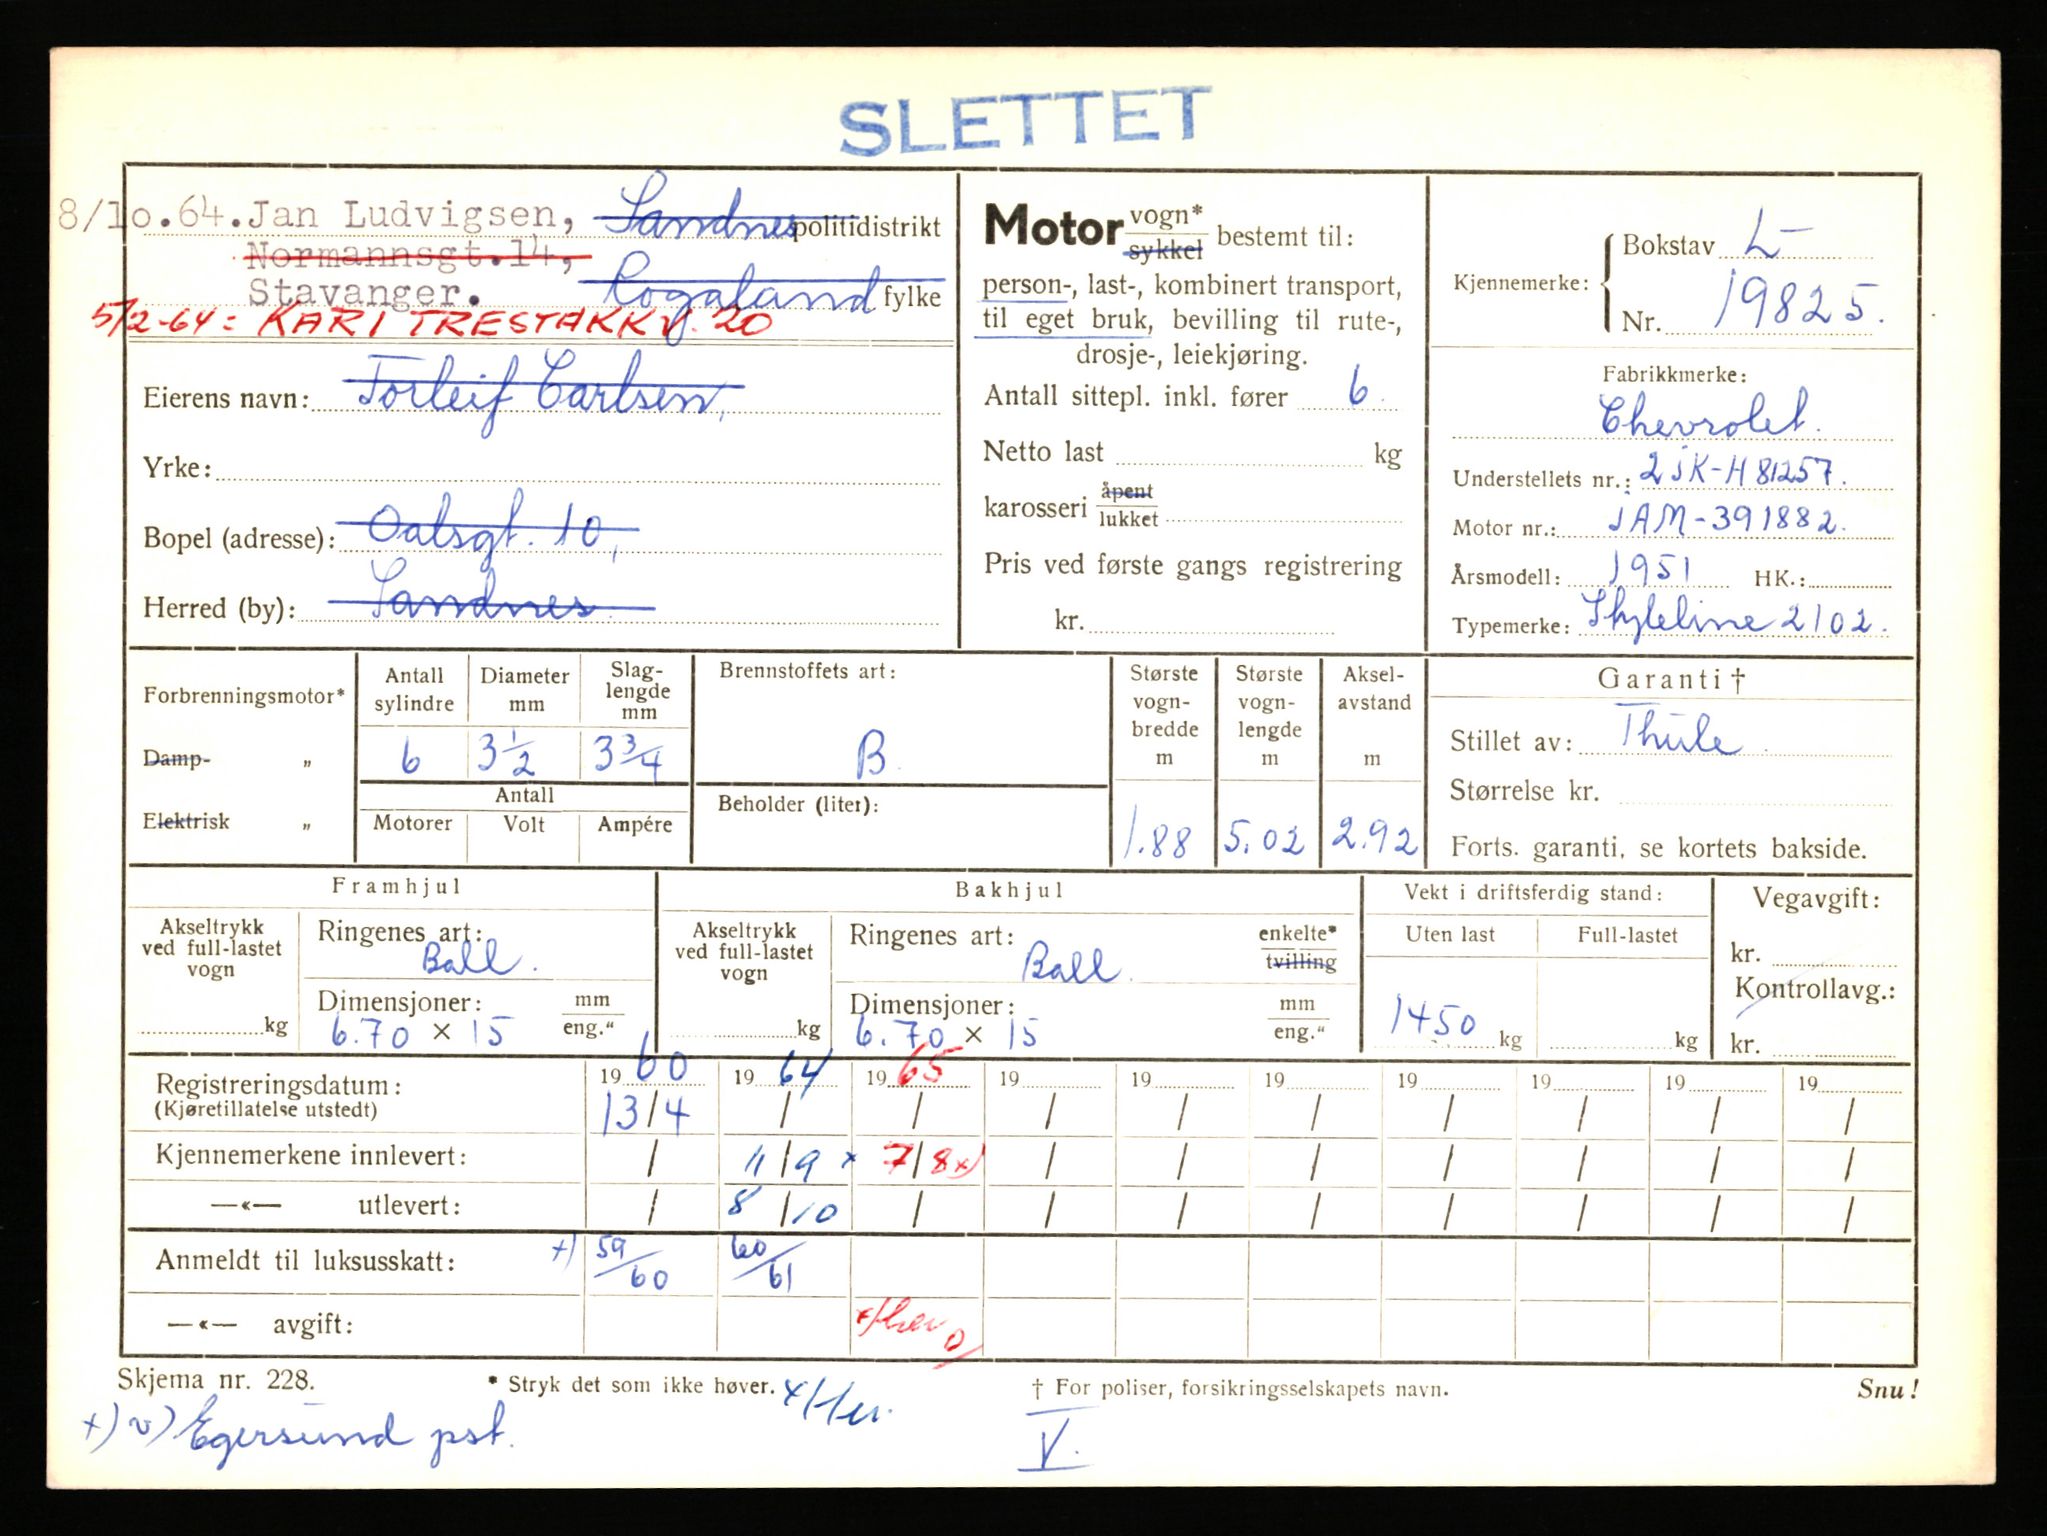 SLETTET
8/10.64. Jan Ludvigsen, Sandnes politidistrikt
Normannsgt.14,
Stavanger. Rogaland fylke
5/2-64: KARI TRESTAKKV. 20
Eierens navn: Torleif Carlsen,
Yrke:
Bopel (adresse): Oalsgt. 10,
Herred (by): Sandnes
Motor vogn* sykkel bestemt til:
person-, last-, kombinert transport,
til eget bruk, bevilling til rute-,
drosje-, leiekjøring.
Antall sittepl. inkl. fører 6
Netto last kg
karosseri åpent lukket
Pris ved første gangs registrering
kr.
Kjennemerke: Bokstav L-
Nr. 19825.
Fabrikkmerke:
Chevrolet.
Understellets nr.: 2JK-H81257.
Motor nr.: JAM-391882.
Årsmodell: 1951 HK.:
Typemerke: Styleline 2102.
Forbrenningsmotor*
Damp- „
Elektrisk „
Antall sylindre 6
Diameter mm 3 1/2
Slag-lengde mm 3 3/4
Antall
Motorer Volt Ampére
Brennstoffets art:
B
Beholder (liter):
Største vogn-bredde m 1.88
Største vogn-lengde m 5.02
Aksel-avstand m 2.92
Garanti †
Stillet av: Thule
Størrelse kr.
Forts. garanti, se kortets bakside.
Framhjul
Akseltrykk ved full-lastet vogn kg
Ringenes art: Ball.
Dimensjoner: mm
6.70 × 15 eng."
Bakhjul
Akseltrykk ved full-lastet vogn kg
Ringenes art: enkelte*
Ball. tvilling
Dimensjoner: mm
6.70 × 15 eng."
Vekt i driftsferdig stand:
Uten last Full-lastet
1450 kg kg
Vegavgift:
kr.
Kontrollavg.:
kr.
Registreringsdatum: 1960 1964 1965 19 19 19 19 19 19 19
(Kjøretillatelse utstedt) 13/4 / / / / / / / / /
Kjennemerkene innlevert: / 11/9 x 7/8 x) / / / / / / /
—«— utlevert: / 8/10 / / / / / / / /
Anmeldt til luksusskatt: +) 59/60 60/61
—«— avgift:
Skjema nr. 228. * Stryk det som ikke høver. † For poliser, forsikringsselskapets navn. Snu!
+) v) Egersund pst.
V.